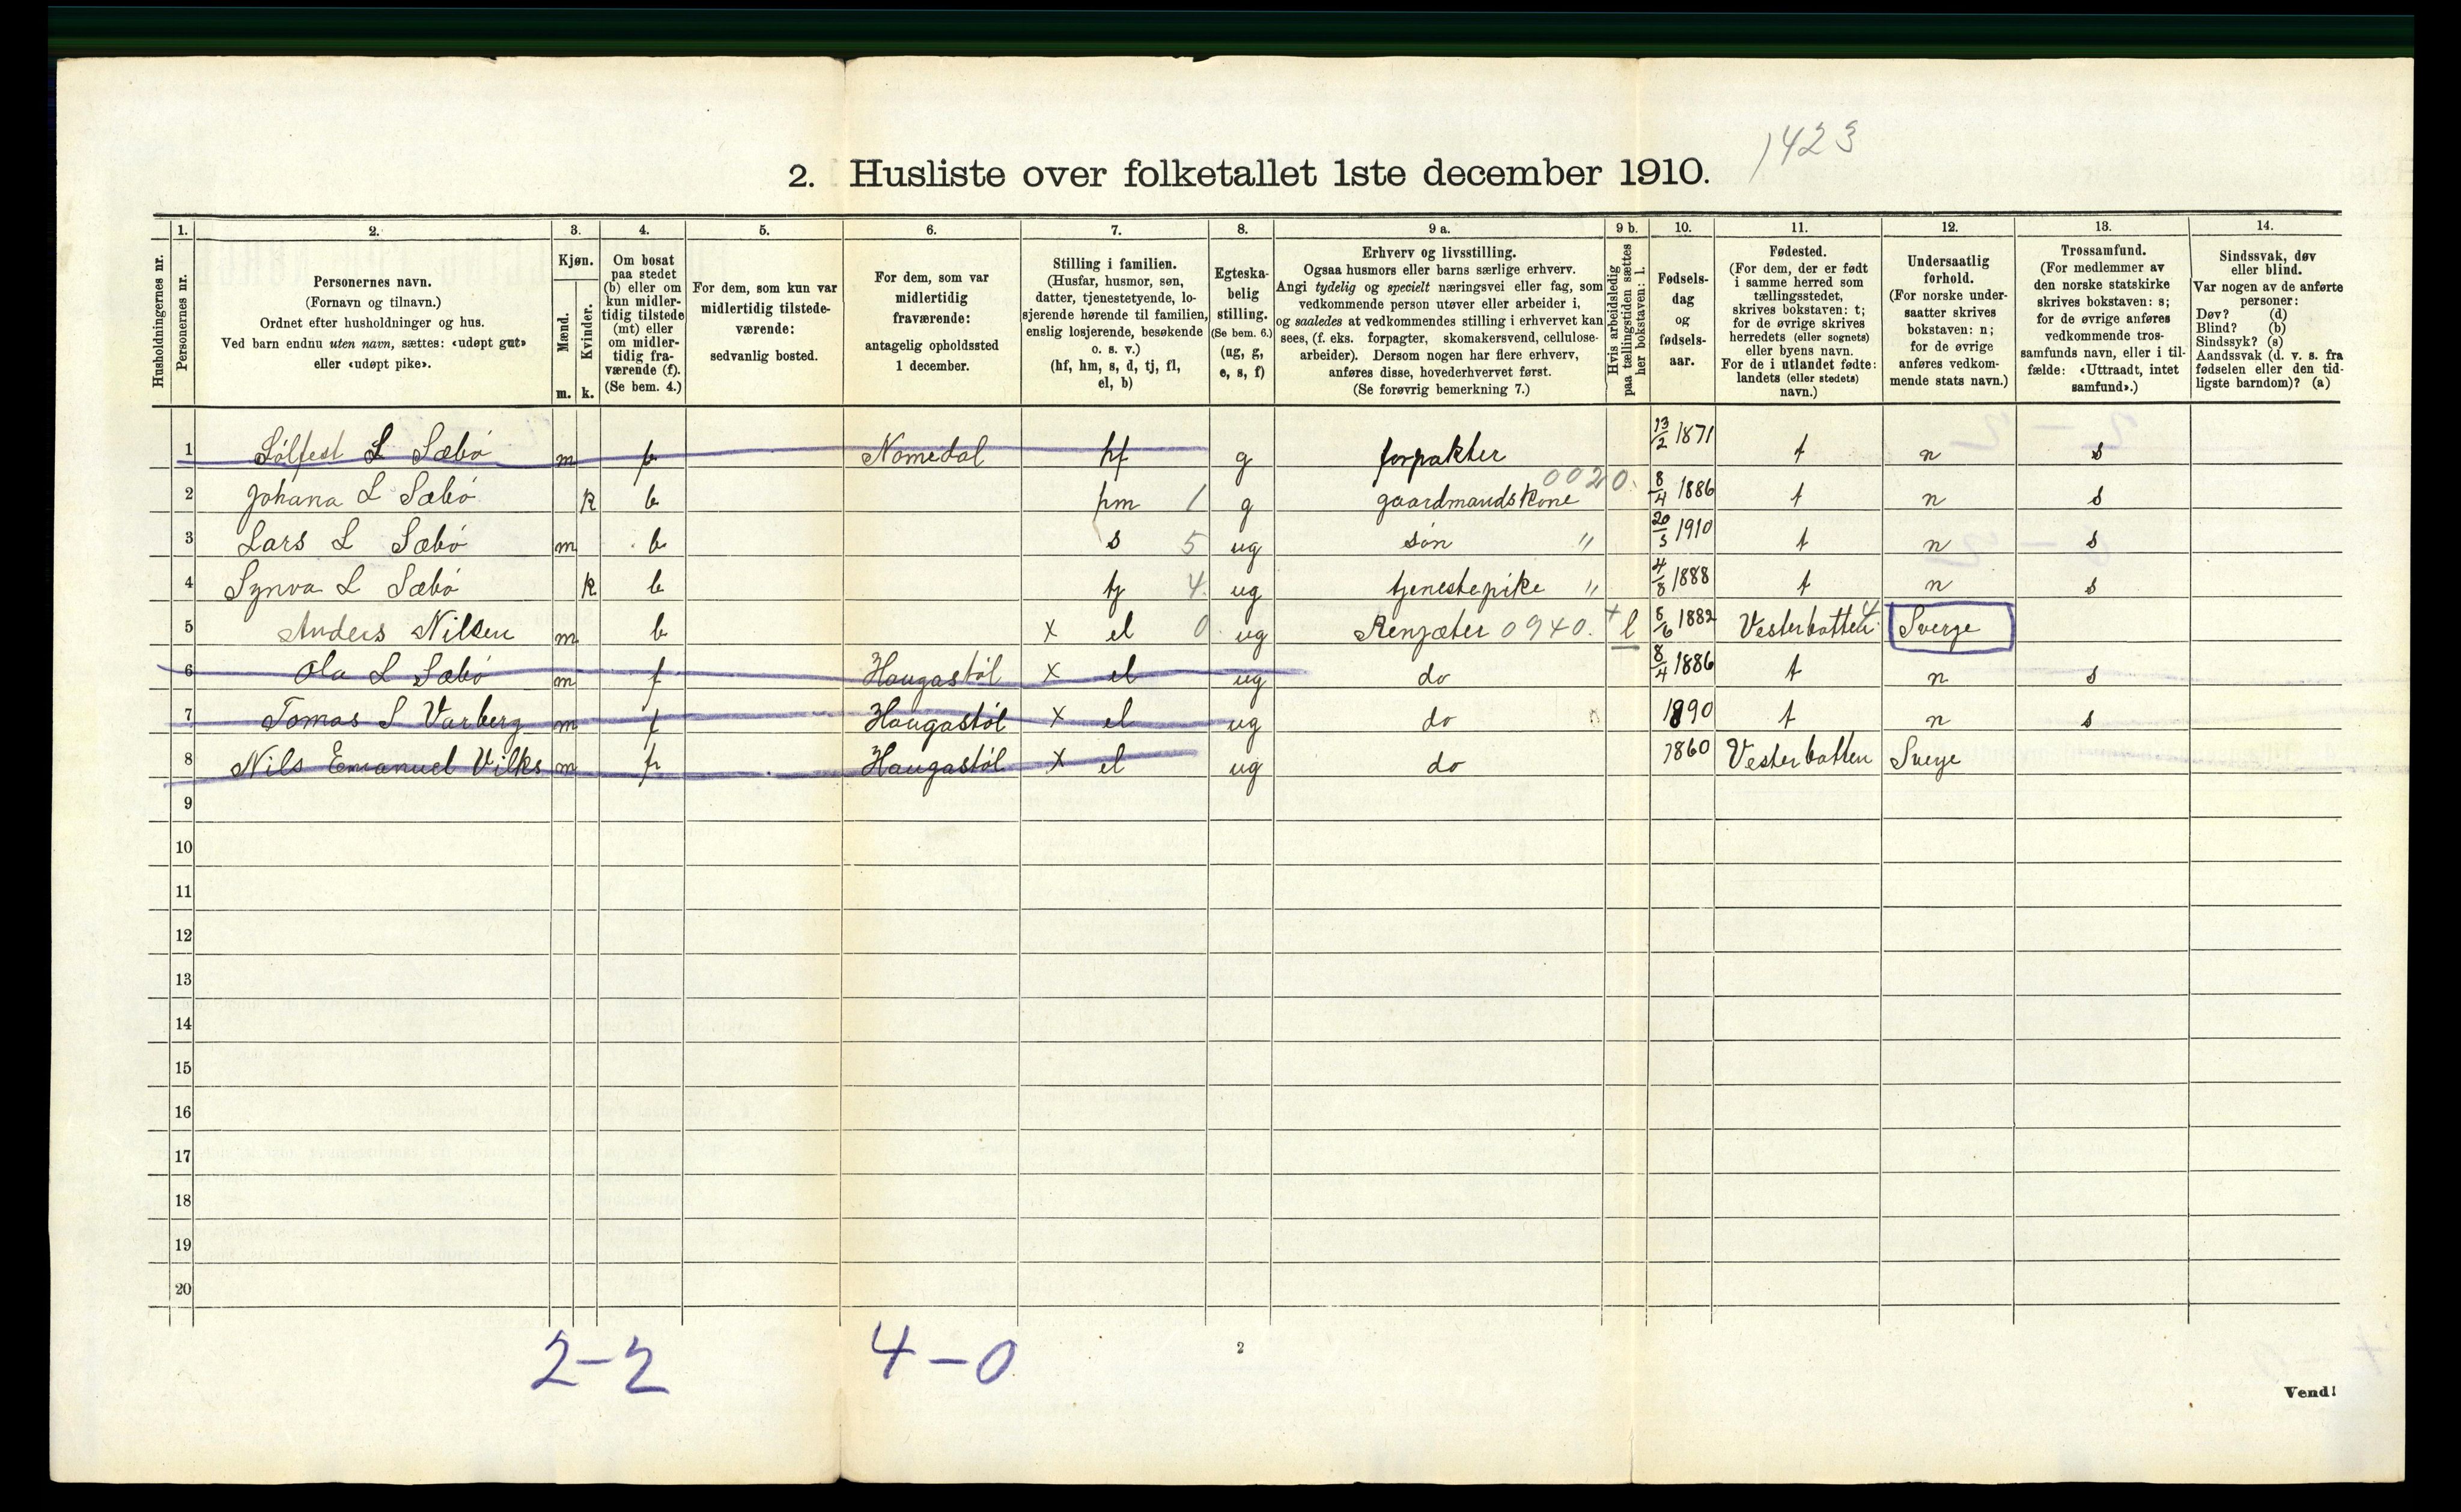 1423
2. Husliste over folketallet 1ste december 1910.
Husholdningernes nr.
1. Personernes nr.
2. Personernes navn.
(Fornavn og tilnavn.)
Ordnet efter husholdninger og hus.
Ved barn endnu uten navn, sættes: «udøpt gut»
eller «udøpt pike».
3. Kjøn.
Mænd. m.
Kvinder. k.
4. Om bosat
paa stedet
(b) eller om
kun midler-
tidig tilstede
(mt) eller
om midler-
tidig fra-
værende (f).
(Se bem. 4.)
5. For dem, som kun var
midlertidig tilstede-
værende:
sedvanlig bosted.
6. For dem, som var
midlertidig
fraværende:
antagelig opholdssted
1 december.
7. Stilling i familien.
(Husfar, husmor, søn,
datter, tjenestetyende, lo-
sjerende hørende til familien,
enslig losjerende, besøkende
o. s. v.)
(hf, hm, s, d, tj, fl,
el, b)
8. Egteska-
belig
stilling.
(Se bem. 6.)
(ug, g,
e, s, f)
9 a. Erhverv og livsstilling.
Ogsaa husmors eller barns særlige erhverv.
Angi tydelig og specielt næringsvei eller fag, som
vedkommende person utøver eller arbeider i,
og saaledes at vedkommendes stilling i erhvervet kan
sees, (f. eks. forpagter, skomakersvend, cellulose-
arbeider). Dersom nogen har flere erhverv,
anføres disse, hovederhvervet først.
(Se forøvrig bemerkning 7.)
9 b. Hvis arbeidsledig
paa tællingstiden sættes
her bokstaven: l.
10. Fødsels-
dag
og
fødsels-
aar.
11. Fødested.
(For dem, der er født
i samme herred som
tællingsstedet,
skrives bokstaven: t;
for de øvrige skrives
herredets (eller sognets)
eller byens navn.
For de i utlandet fødte:
landets (eller stedets)
navn.)
12. Undersaatlig
forhold.
(For norske under-
saatter skrives
bokstaven: n;
for de øvrige
anføres vedkom-
mende stats navn.)
13. Trossamfund.
(For medlemmer av
den norske statskirke
skrives bokstaven: s;
for de øvrige anføres
vedkommende tros-
samfunds navn, eller i til-
fælde: «Uttraadt, intet
samfund».)
14. Sindssvak, døv
eller blind.
Var nogen av de anførte
personer:
Døv? (d)
Blind? (b)
Sindssyk? (s)
Aandssvak (d. v. s. fra
fødselen eller den tid-
ligste barndom)? (a)
1 Sølfest L Sæbø m f Nomedal hf g forpakter 13/2 1871 t n s
2 Johana L Sæbø k b hm 1 g gaardmandskone 0020. 8/4 1886 t n s
3 Lars L Sæbø m b s 5 ug søn " 20/3 1910 t n s
4 Synva L Sæbø k b tj 4. ug tjenestepike " 4/8 1888 t n s
5 Anders Nilsen m b x el 0. ug Renjæter 0940. + l 8/6 1882 Vesterbotten 4 Sverje
6 Ola L Sæbø m f Haugastøl x el ug do 8/4 1886 t n s
7 Tomas S Varberg m f Haugastøl x el ug do 1890 t n s
8 Nils Emanuel Vilks m f Haugastøl x el ug do 1860 Vesterbotten Sverje
9
10
11
12
13
14
15
16
17
18
19
20
2-2 4-0
2
Vend!